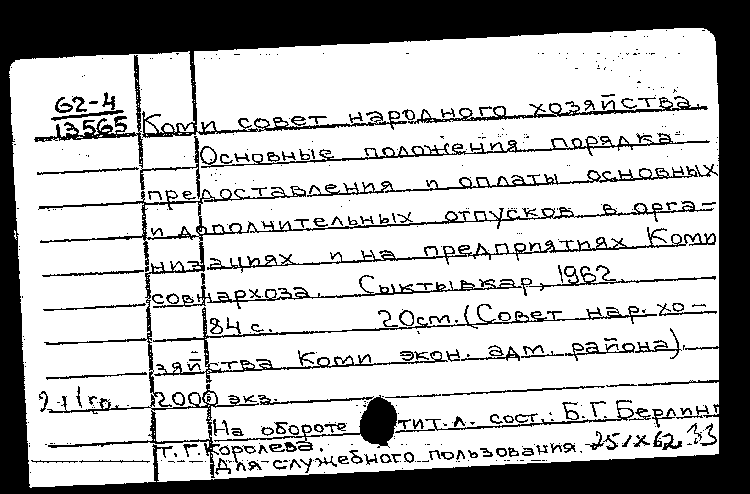 62-4
13565
Коми совет народного хозяйства.
Основные положения порядка
предоставления и оплаты основных
и дополнительных отпусков в орга-
низациях и на предприятиях Коми
совнархоза. Сыктывкар, 1962.
84 с. 20см. (Совет нар. хо-
зяйства Коми экон. адм. района).
2000 экз.
На обороте тит. л. сост.: Б. Г. Берлинг
Т. Г. Королева.
Для служебного пользования. 25/IX 62. 33